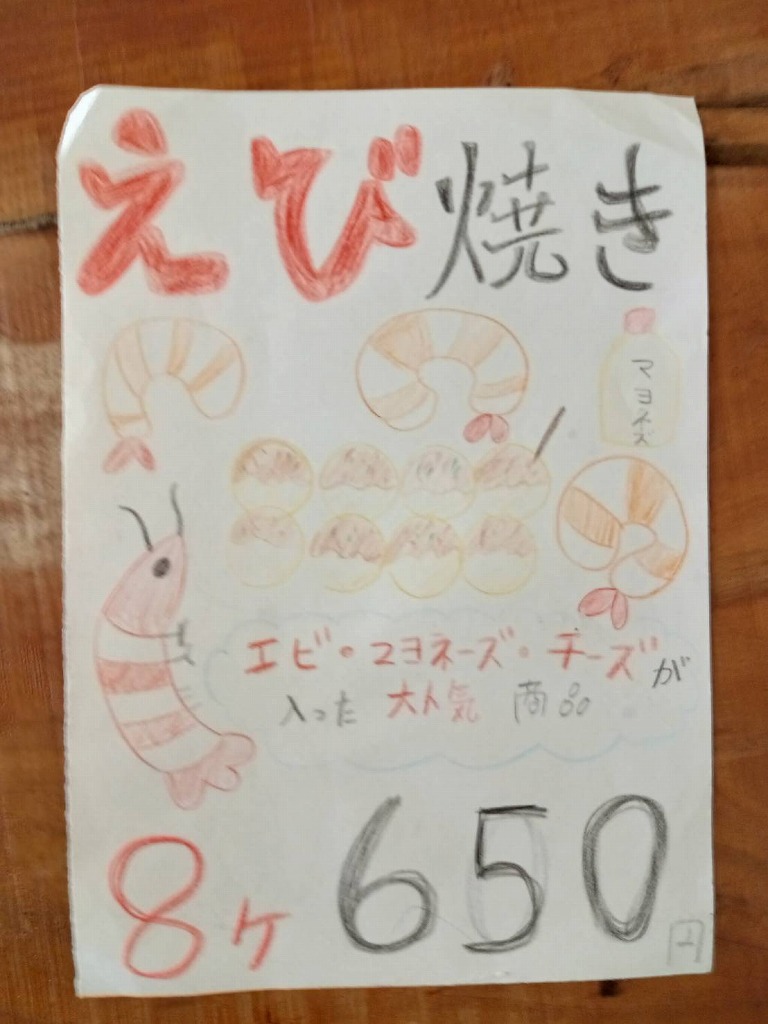 えび焼き
マヨネズ
エビ・マヨネーズ・チーズが
入った 大人気 商品
8ケ 650